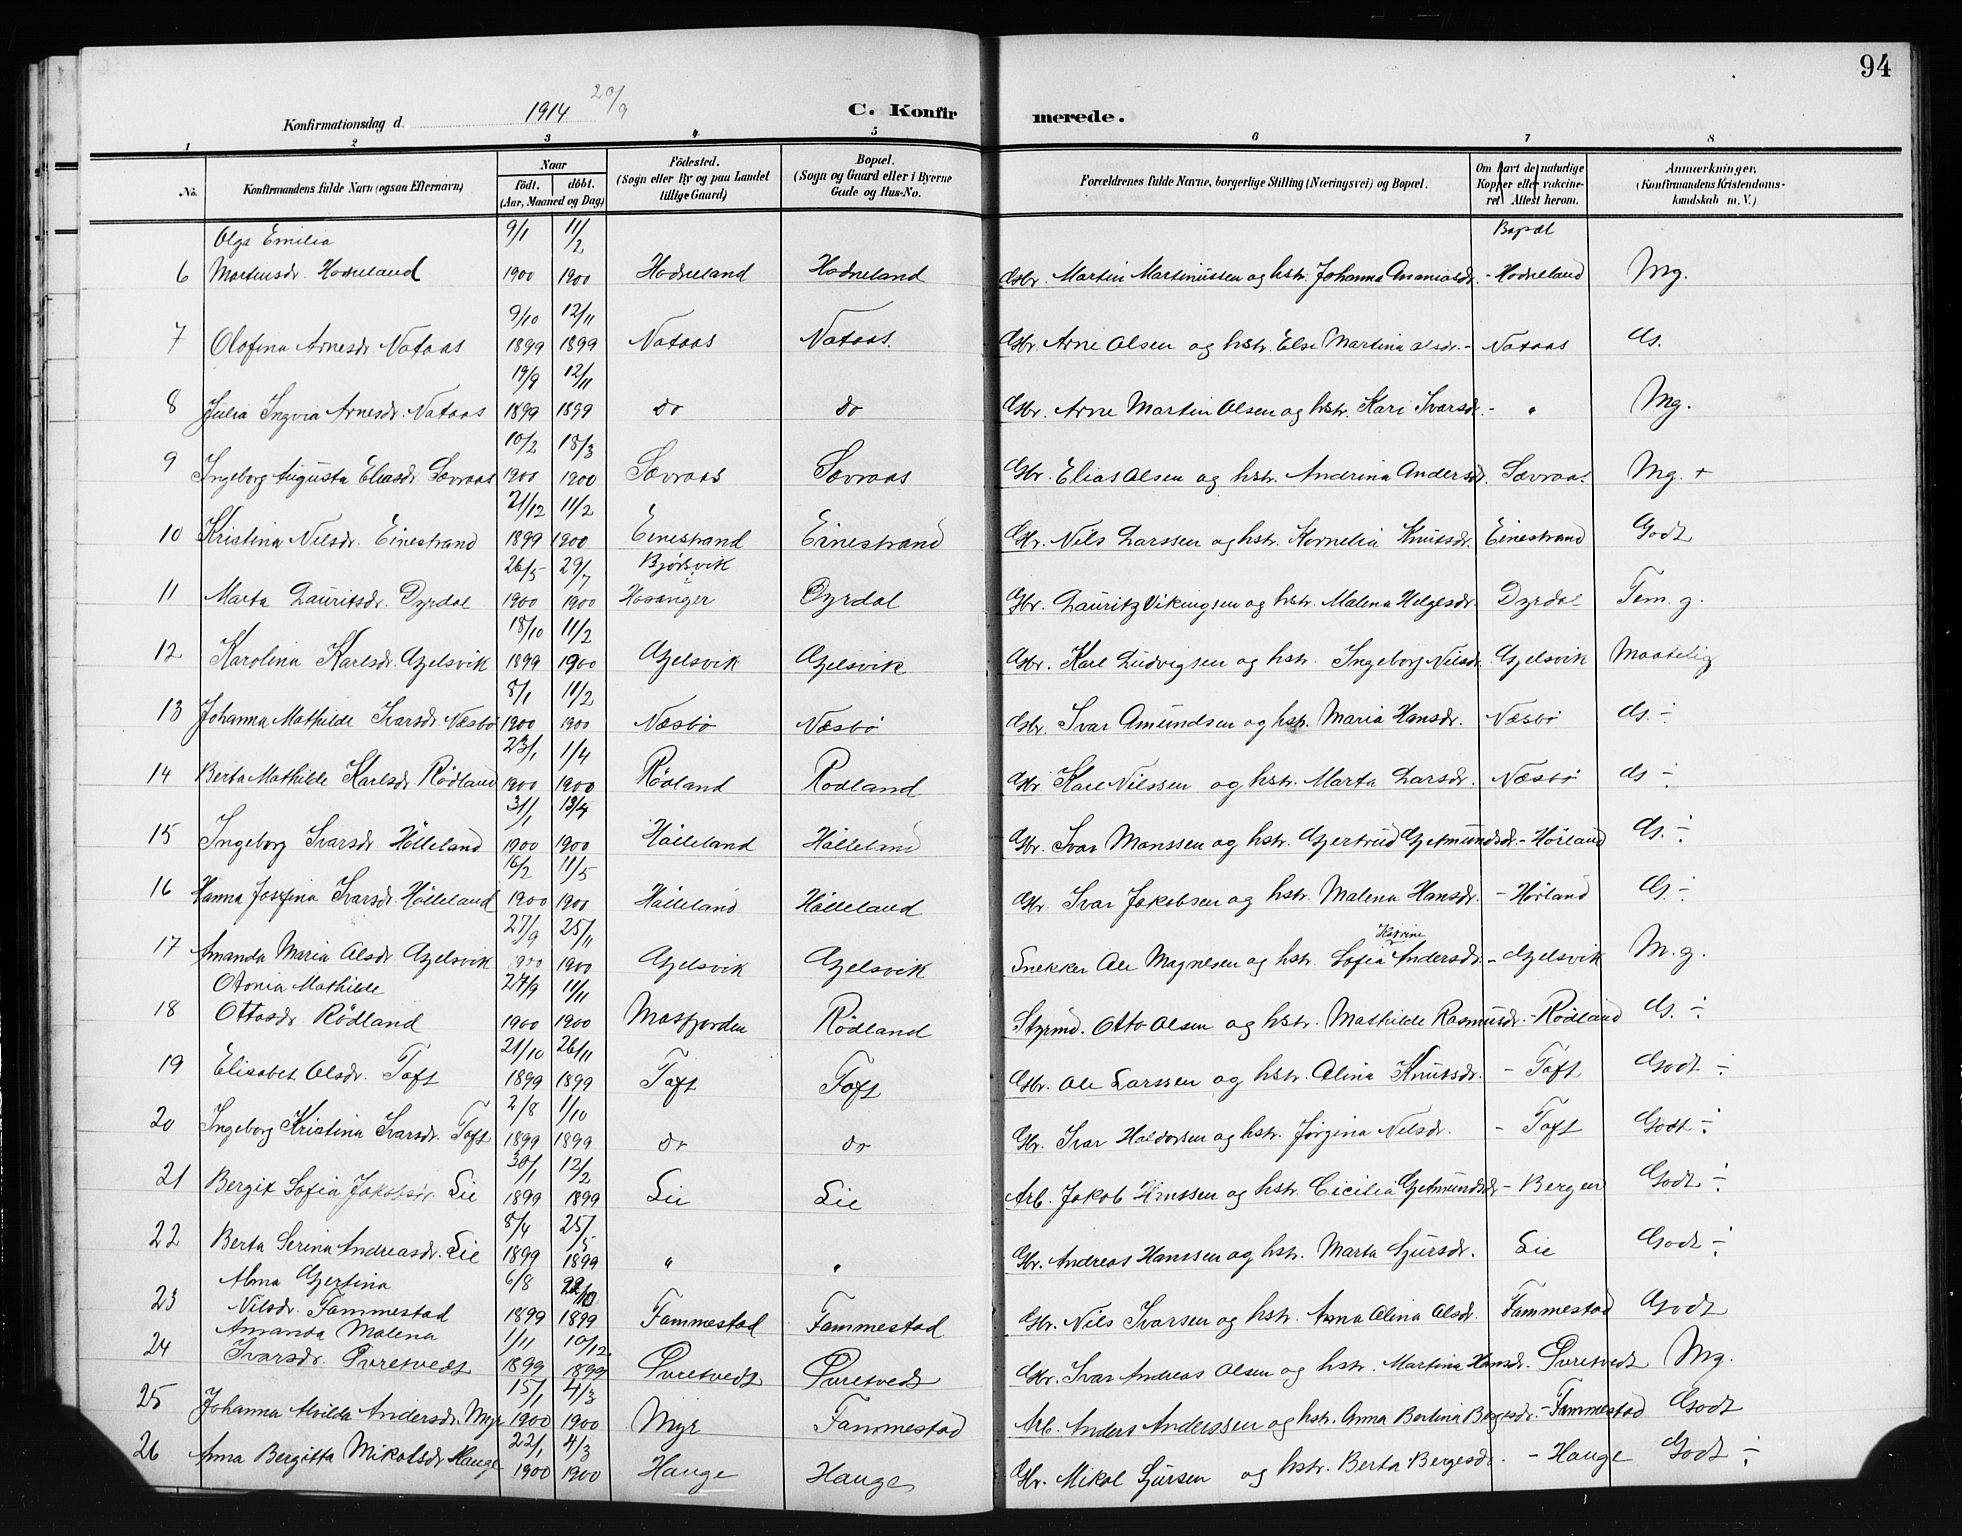 94
Konfirmationsdag d. 1914 20/9 C. Konfirmerede.
1 2 3 4 5 6 7 8
No. Konfirmandens fulde Navn (ogsaa Efternavn) Naar födt. döbt. (Aar, Maaned og Dag) Födested. (Sogn eller By og paa Landet tillige Gaard) Bopæl. (Sogn og Gaard eller i Byerne Gade og Hus-No. Forældrenes fulde Navne, borgerlige Stilling (Næringsvei) og Bopæl. Om havt de naturlige Kopper eller vakcineret Attest herom. Anmerkninger. (Konfirmandens Kristendomskundskab m. V.)
Bopæl
Olga Emilia 9/1 11/2
6 Martinsdr. Hodneland 1900 1900 Hodneland Hodneland Gbr. Martin Martinussen og hstr. Johanna Ananiasdr. - Hodneland Mg.
9/10 12/11
7 Olofina Arnesdr. Nataas 1899 1899 Nataas Nataas. Gbr. Arne Olsen og hstr. Else Martina Olsdr. - Nataas G.
19/9 12/11
8 Julia Ingvia Arnesdr. Nataas 1899 1899 do do Gbr. Arne Martin Olsen og hstr. Kari Ivarsdr. - " Mg.
10/2 18/3
9 Ingeborg Augusta Eliasdr. Sævraas 1900 1900 Sævraas Sævraas Gbr. Elias Olsen og hstr. Andrina Andersdr. Sævraas Mg. +
21/12 11/2
10 Kristina Nilsdr. Einestrand 1899 1900 Einestrand Einestrand Gbr. Nils Larssen og hstr. Kornelia Knutsdr. Einestrand Godt
26/5 29/7 Bjørsvik
11 Marta Lauritsdr. Dyrdal 1900 1900 Hosanger Dyrdal Gbr. Lauritz Vikingsen og hstr. Malena Helgesdr. Dyrdal Tem. g.
18/10 11/2
12 Karolina Karlsdr. Gjelsvik 1899 1900 Gjelsvik Gjelsvik Gbr. Karl Ludvigsen og hstr. Ingeborg Nilsdr. Gjelsvik Maatelig
8/1 11/2
13 Johanna Mathilde Ivarsdr. Næsbø 1900 1900 Næsbø Næsbø Gbr. Ivar Amundsen og hstr. Maria Hansdr. Næsbø G. ÷
23/1 1/4
14 Berta Mathilde Karlsdr. Rødland 1900 1900 Rødland Rødland Gbr. Karl Nilssen og hstr. Marta Larsdr. Næsbø G ÷
31/1 13/4
15 Ingeborg Ivarsdr. Hølleland 1900 1900 Hølleland Hølleland Gbr. Ivar Monssen og hstr. Gjertrud Gjetmundsdr. - Hørland G. ÷
16/2 11/5
16 Hanna Josefina Ivarsdr. Hølleland 1900 1900 Hølleland Hølleland Gbr. Ivar Jakobsen og hstr. Malena Hansdr. - Hørland G. ÷
27/9 25/11 Katrine
17 Amanda Maria Olsdr. Gjelsvik 1900 1900 Gjelsvik Gjelsvik Snekker Ole Magnesen og hstr. Sofia Andersdr. - Gjelsvik M.g.
Otonia Mathilde 27/9 11/11
18 Ottosdr. Rødland 1900 1900 Masfjorden Rødland Styrmd. Otto Olsen og hstr. Mathilde Rasmusdr. - Rødland G. ÷
21/10 26/11
19 Elisabet Olsdr. Toft 1899 1899 Toft Toft Gbr. Ole Larssen og hstr. Olina Knutsdr. - Toft Godt ÷
2/8 1/10
20 Ingeborg Kristina Ivarsdr. Toft 1899 1899 do do Gbr. Ivar Haldorsen og hstr. Jørgina Nilsdr. - Toft Godt ÷
30/1 12/2
21 Bergit Sofia Jakobsdr. Lie 1899 1899 Lie Lie Arb. Jakob Hanssen og hstr. Cicilia Gjetmundsdr. - Bergen Godt ÷
8/4 25/5
22 Berta Serina Andreasdr. Lie 1899 1899 " " Gbr. Andreas Hanssen og hstr. Marta Sjursdr. Lie Godt ÷
Alma Gjertina 6/8 22/10
23 Nilsdr. Fammestad 1899 1899 Fammestad Fammestad Gbr. Nils Ivarsen og hstr. Anna Olina Olsdr. Fammestad Godt
Amanda Malena 1/11 10/12
24 Ivarsdr. Puretvedt 1899 1899 Puretvedt Puretvedt Gbr. Ivar Andreas Olsen og hstr. Martina Hansdr. Puretvedt Mg.
15/1 4/3
25 Johanna Alvilda Andersdr. Myr 1900 1900 Myr Fammestad Arb. Anders Anderssen og hstr. Anna Bertina Bergesdr. - Fammestad Godt
22/1 4/3
26 Anna Bergitta Mikalsdr. Hauge 1900 1900 Hauge Hauge Gbr. Mikal Sjursen og hstr. Berta Bergesdr. - Hauge Godt ÷